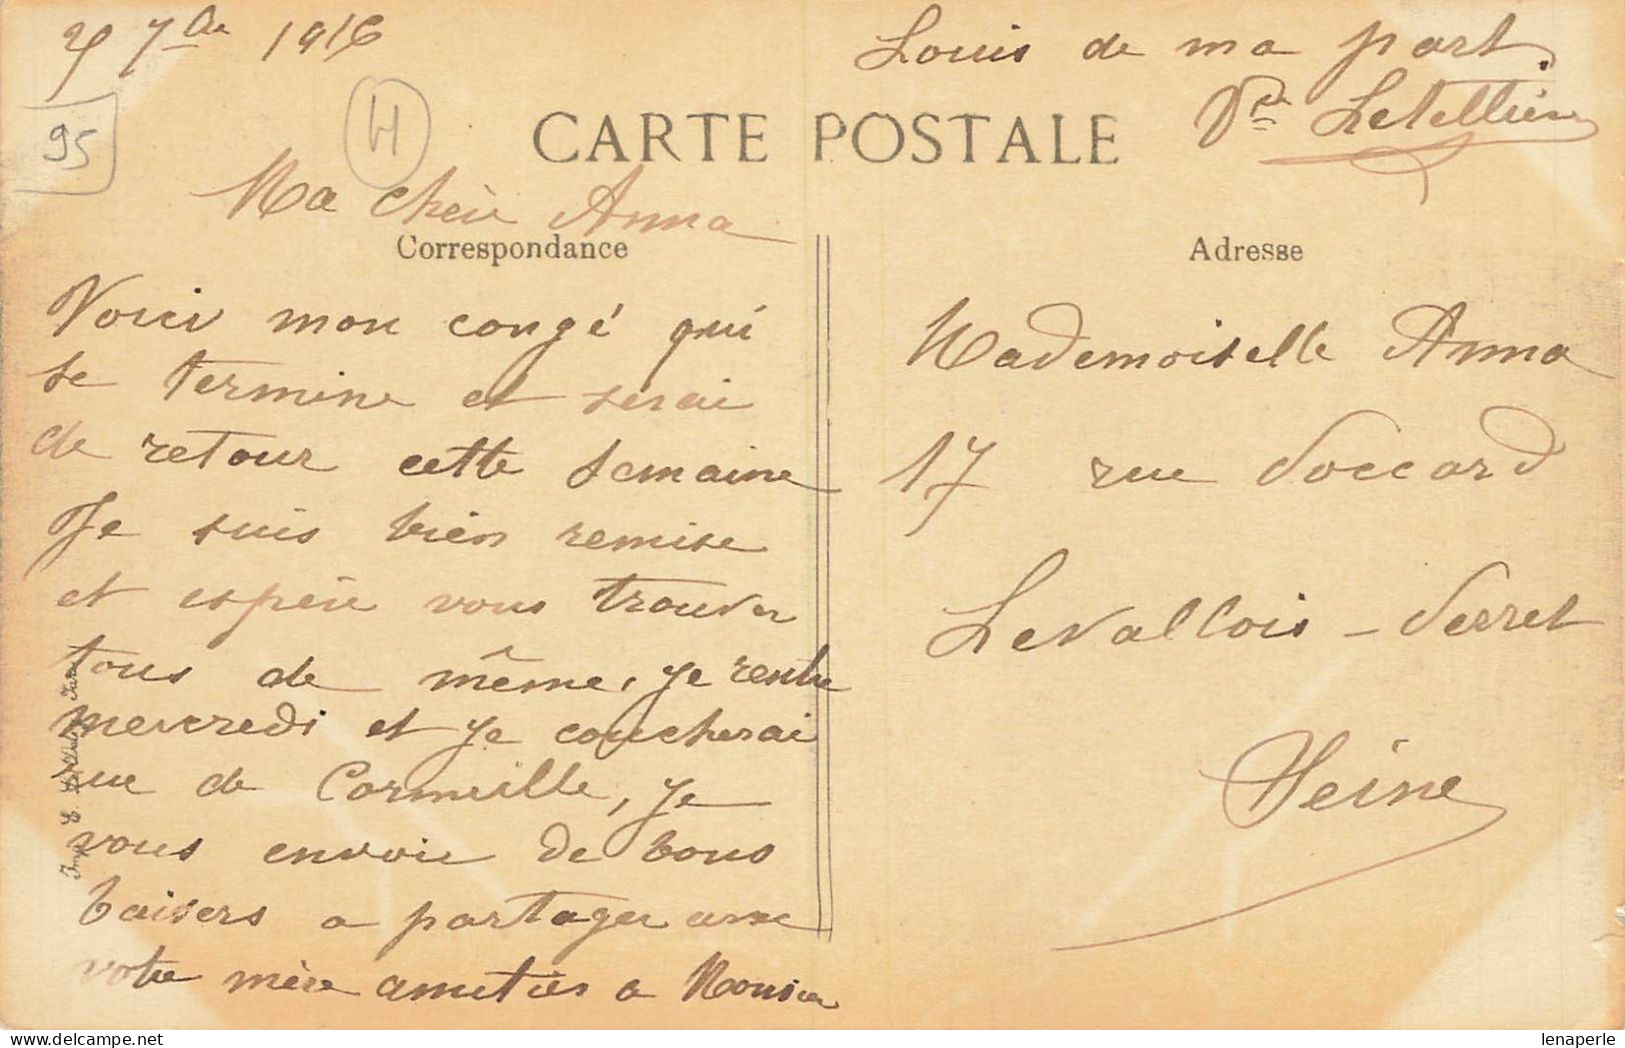 7bre 1916
95
H
CARTE POSTALE
Ma chère Anna
Correspondance
Voici mon congé qui
se termine et serai
de retour cette semaine
Je suis bien remise
et espère vous trouver
tous de même, je rentre
mercredi et je coucherai
rue de Cormeille, je
vous envoie de bons
baisers a partager avec
votre mère amitiés a Monsieur
Louis de ma part.
Ve Letellier
Adresse
Mademoiselle Anna
17 rue Voccard
Levallois - Perret
Seine
Imp. E.
lenaperle